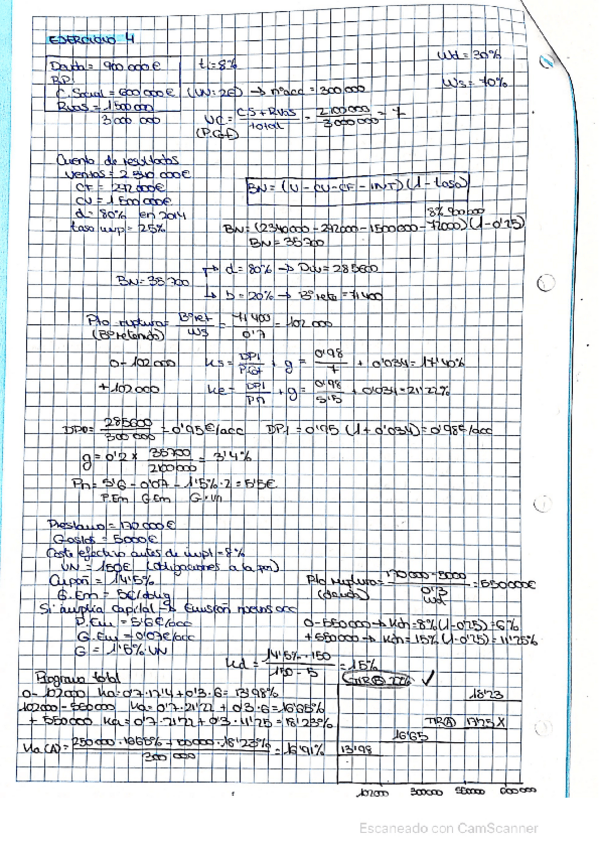 EJERCICIO 4
Deuda = 900.000€ i = 8% Wd = 30%
B.P. Ws = 70%
C. Social = 600.000€ (VN=2€) → nºacc = 300.000
Rvas = 1500 000
3000 000
VC = CS + Rvas / total = 2100000 / 3000000 = 7
(P.Cot)
Cuenta de resultados
Ventas = 2 340 000€
CF = 292.000€
CV = 1 500 000€
d = 80% en 2014
tasa imp = 25%
BN = (V - CV - CF - INT) (1 - tasa)
8% 900000
BN = (2340000 - 292000 - 1500000 - 72000) (1 - 0'25)
BN = 35700
BN = 35700
→ d = 80% → Div = 285600
→ b = 20% → Bº rete = 71400
Pto ruptura = Bº ret / Ws = 71 400 / 0'7 = 102 000
(Bº retenido)
0 - 102000 Ks = DP1 / P.Cot + g = 0'98 / 7 + 0'034 = 17'40%
+ 102 000 Ke = DP1 / Pn + g = 0'98 / 5'5 + 0'034 = 21'22%
DP0 = 285600 / 300 000 = 0'95€/acc DP1 = 0'95 (1 + 0'034) = 0'98€/acc
g = 0'2 x 35700 / 2100000 = 3'4%
Pn = 5'6 - 0'07 - 1'5% · 2 = 5'5€
P.Em G.Em G·Vn
Prestamo = 170 000€
Gastos = 5000€
Coste efectivo antes de impt = 8%
VN = 150€ (obligaciones a la par)
Cupon = 14'5%
G. Em = 5€/oblig
Pto ruptura = 170 000 - 5000 / 0'3 = 550000€
(deuda) Wd
Si amplia capital → Emision nuevas acc
P. Em = 5'6€/acc
G. Em = 0'07€/acc
G = 1'5% VN
0 - 550000 → Kdn = 8% (1 - 0'25) = 6%
+ 550000 → Kdn = 15% (1 - 0'25) = 11'25%
Kd = 14'5% · 150 / 150 - 5 = 15%
Programa total
0 - 102000 Ka = 0'7 · 17'4 + 0'3 · 6 = 13'98%
102000 - 550000 Ka = 0'7 · 21'22 + 0'3 · 6 = 16'65%
+ 550000 Ka = 0'7 · 21'22 + 0'3 · 11'25 = 18'23%
Ka (A) = 250 000 · 16'65% + 50000 · 18'23% / 300 000 = 16'91%
18'23
16'65
13'98
102000 300000 550000 600000
Escaneado con CamScanner